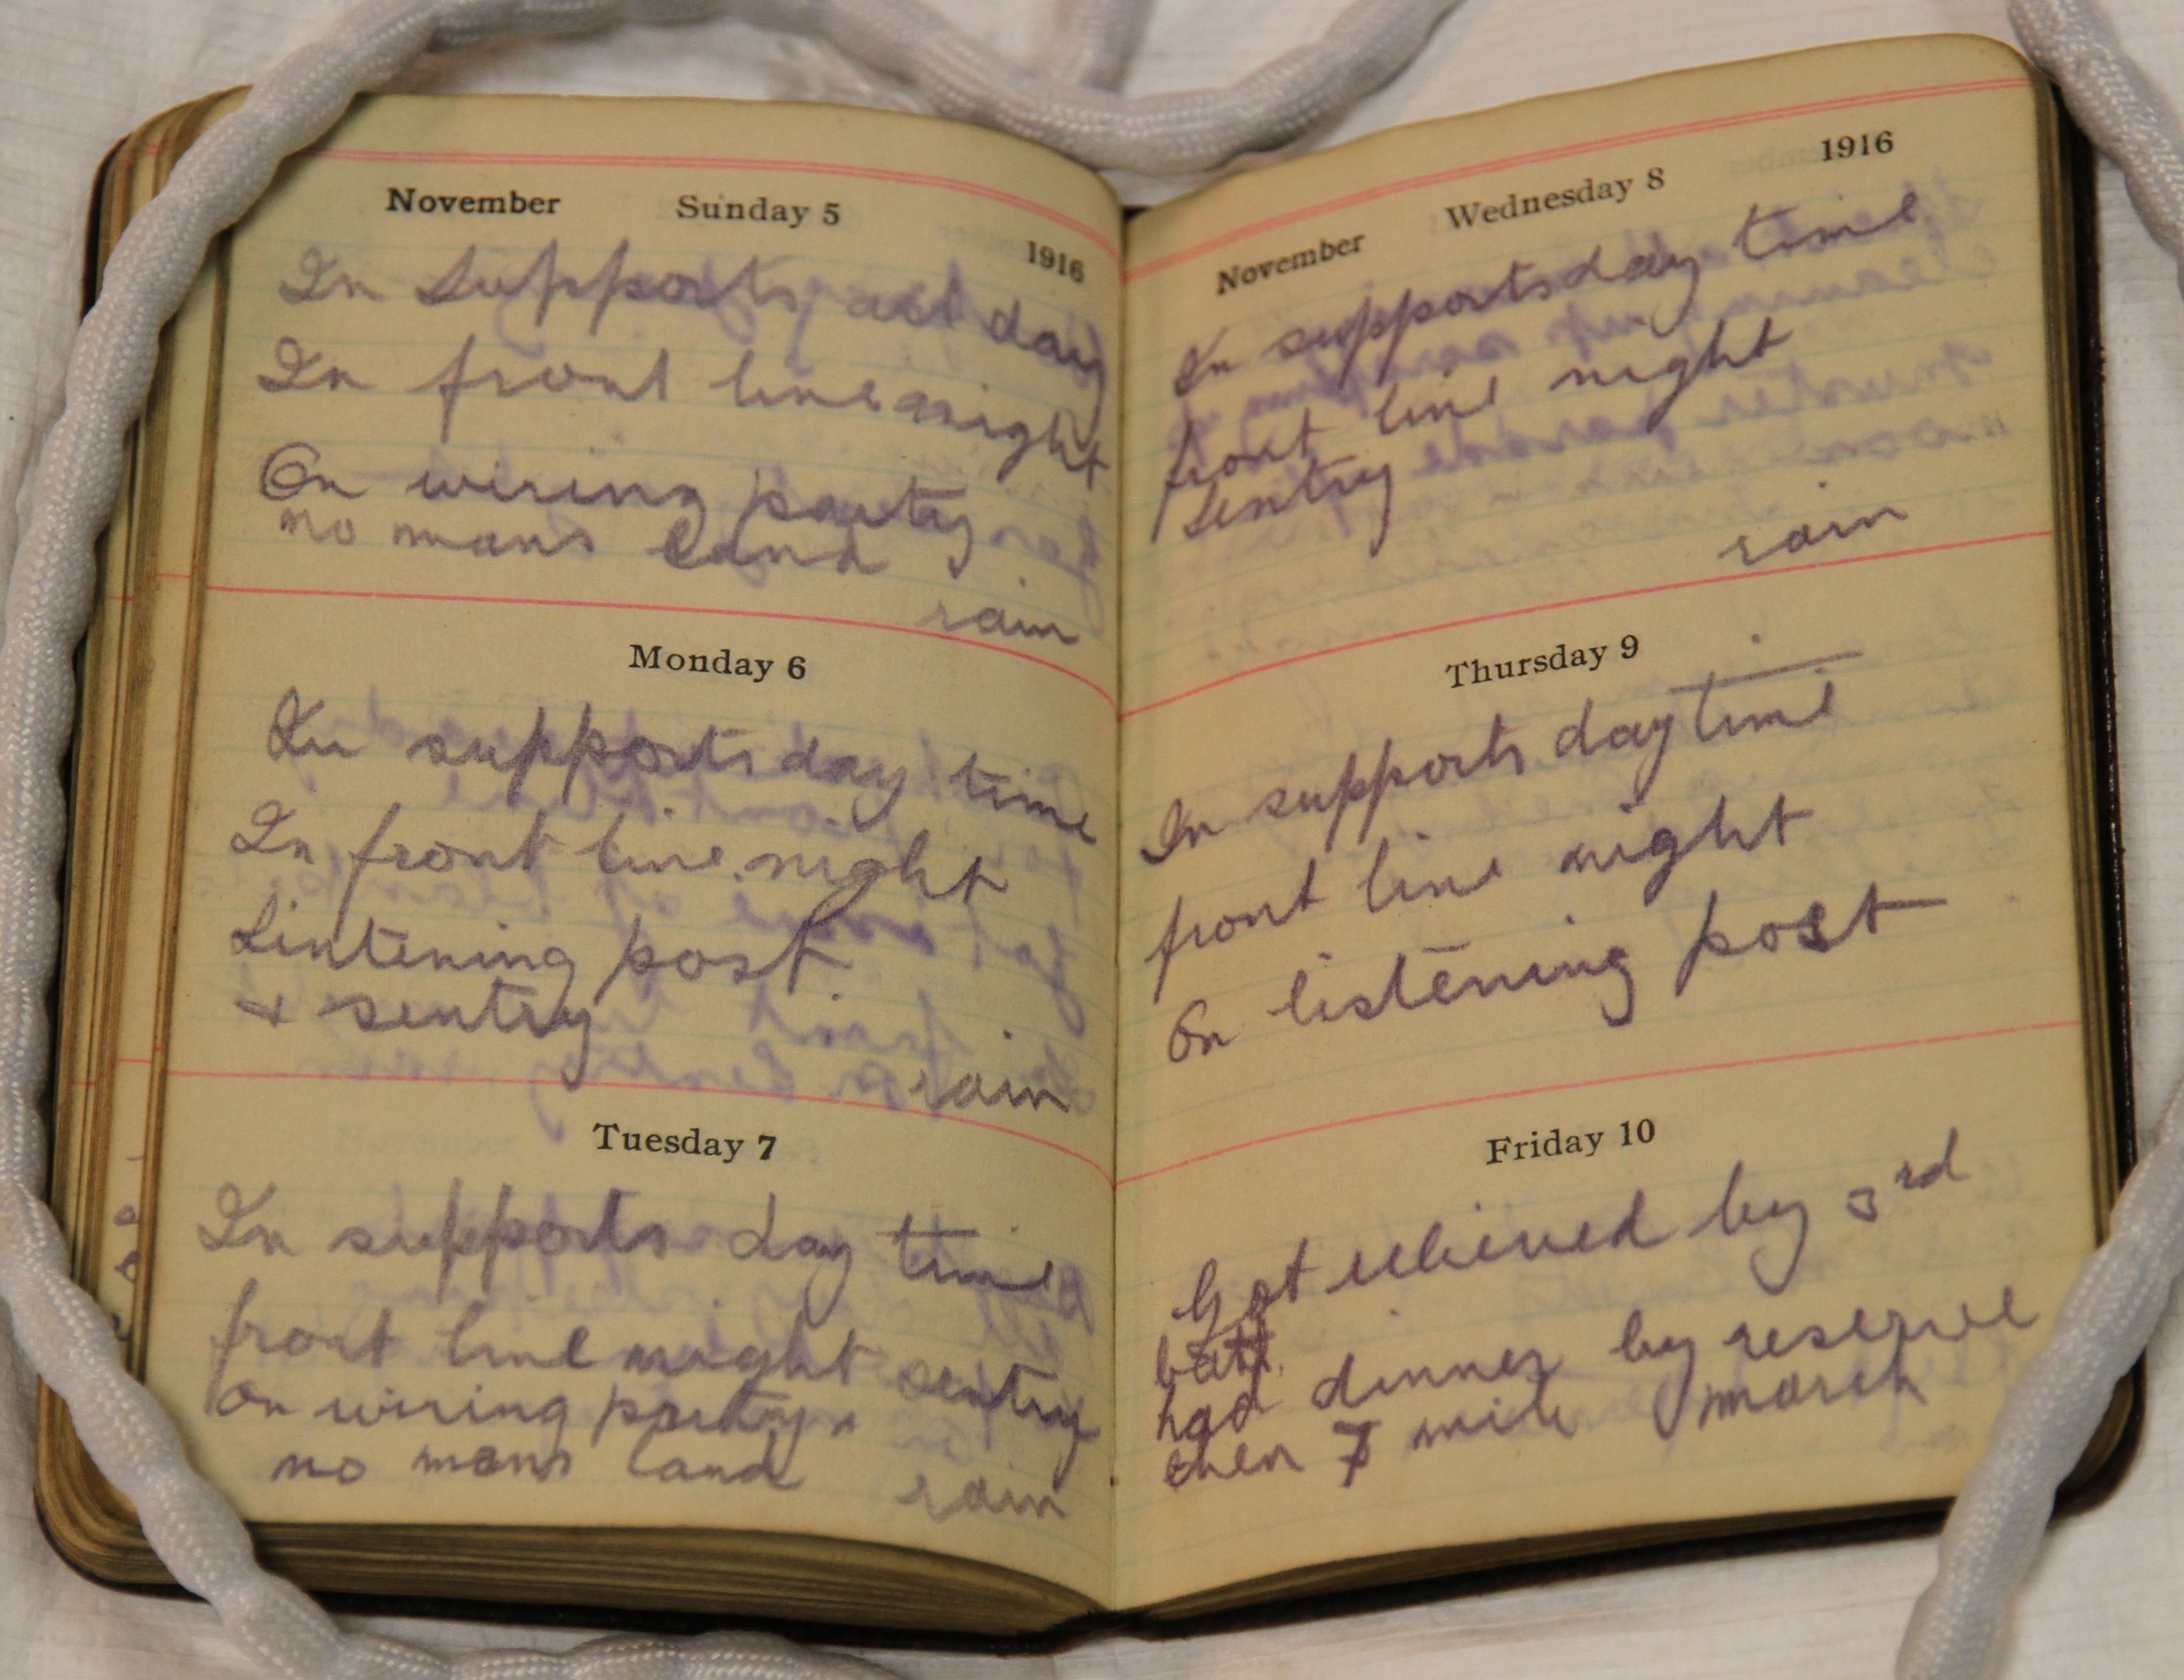 November Sunday 5
1916
In Supports all day
In front line night
On wiring party
no mans land
rain
Monday 6
In supports day time
In front line night
Lintening post
+ sentry
rain
Tuesday 7
In supports day time
front line night sentry
on wiring party
no mans land
rain
1916
November Wednesday 8
In supports day time
front line night
sentry
rain
Thursday 9
In supports day time
front line night
On listening post
Friday 10
Got relieved by 3rd
batt.
had dinner by reserve
then 7 mile march